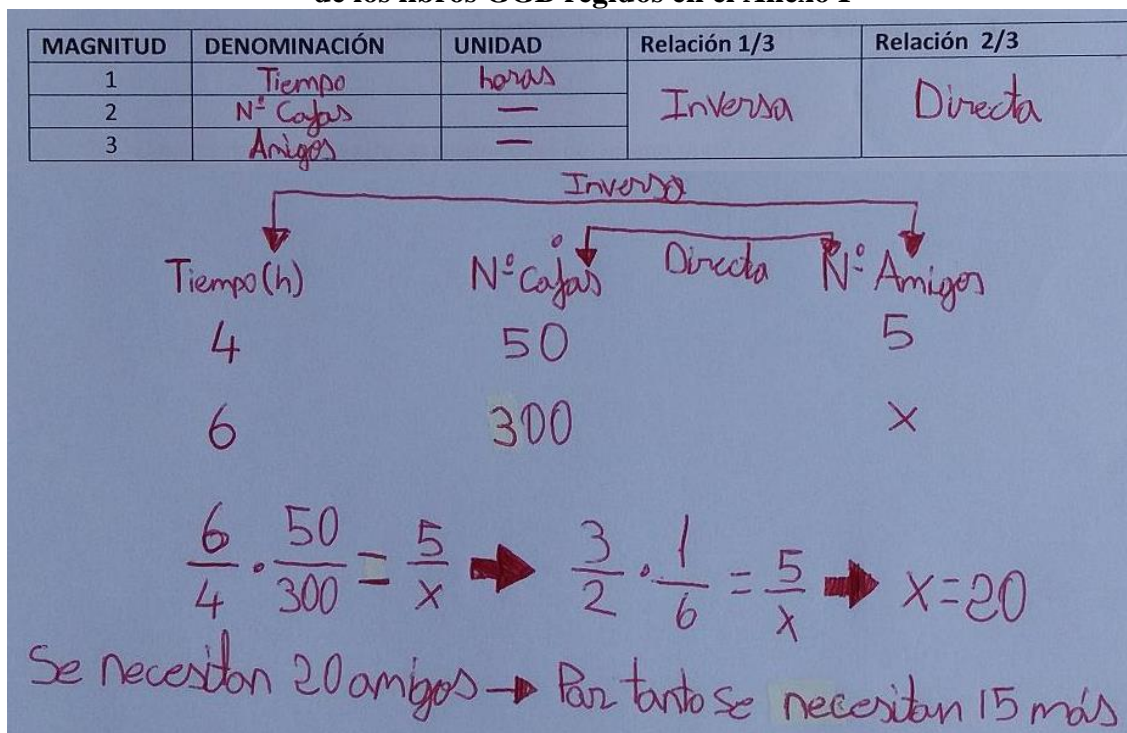 de los libros GGB regidos en el Anexo I
MAGNITUD DENOMINACIÓN UNIDAD Relación 1/3 Relación 2/3
1 Tiempo horas Inversa Directa
2 Nº Cajas —
3 Amigos —
Inversa
Directa
Tiempo(h) Nº Cajas Nº Amigos
4 50 5
6 300 x
6/4 · 50/300 = 5/x ➡ 3/2 · 1/6 = 5/x ➡ x=20
Se necesitan 20 amigos → Por tanto se necesitan 15 más